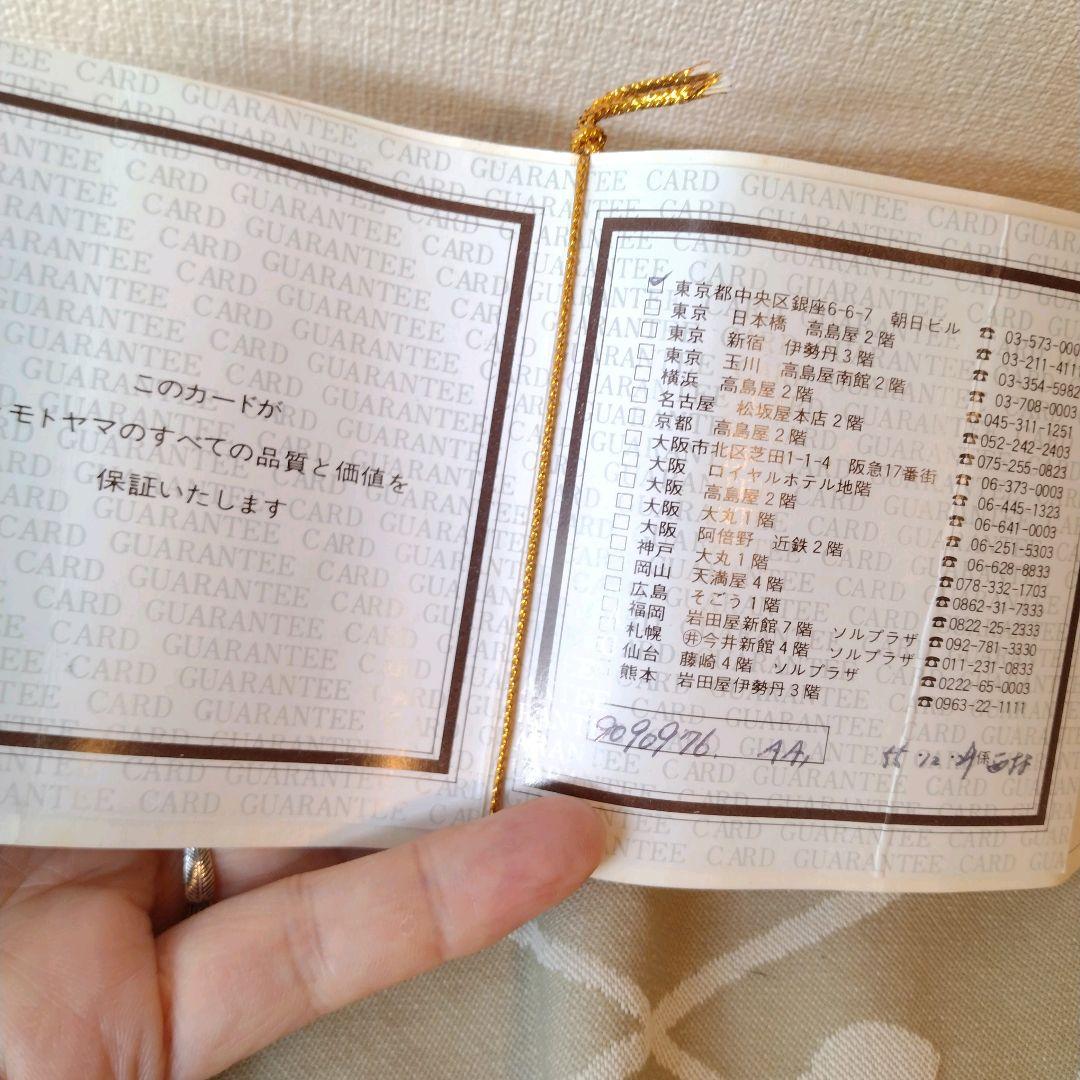 このカードが
モトヤマのすべての品質と価値を
保証いたします
東京都中央区銀座6-6-7 朝日ビル ☎ 03-573-000
東京 日本橋 高島屋2階 ☎ 03-211-4111
東京 新宿 伊勢丹3階 ☎ 03-354-5982
東京 玉川 高島屋南館2階 ☎ 03-708-0003
横浜 高島屋2階 ☎045-311-1251
名古屋 松坂屋本店2階 ☎052-242-2403
京都 高島屋2階 ☎075-255-0823
大阪市北区芝田1-1-4 阪急17番街 ☎ 06-373-0003
大阪 ロイヤルホテル地階 ☎ 06-445-1323
大阪 高島屋2階 ☎ 06-641-0003
大阪 大丸1階 ☎ 06-251-5303
大阪 阿倍野 近鉄2階 ☎ 06-628-8833
神戸 大丸1階 ☎078-332-1703
岡山 天満屋4階 ☎0862-31-7333
広島 そごう1階 ☎0822-25-2333
福岡 岩田屋新館7階 ソルプラザ ☎092-781-3330
札幌 ㊓今井新館4階 ソルプラザ ☎011-231-0833
仙台 藤崎4階 ソルプラザ ☎0222-65-0003
熊本 岩田屋伊勢丹3階 ☎0963-22-1111
9090976 AA,
係
GUARANTEE CARD